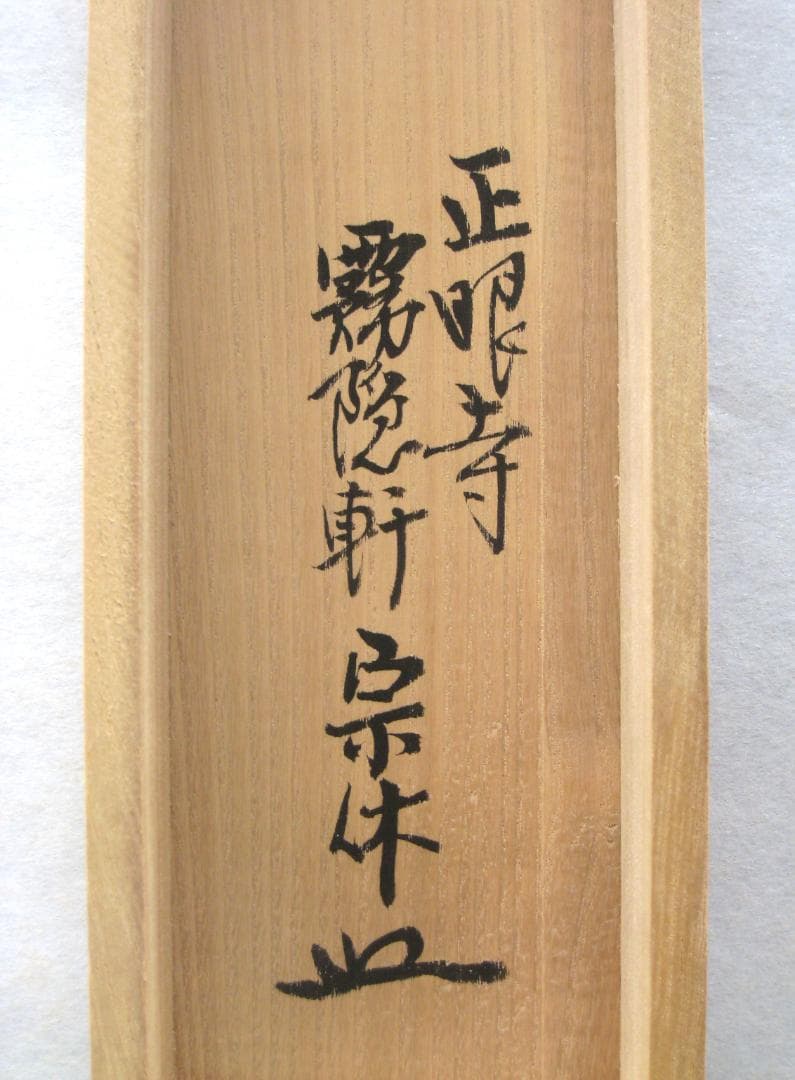 正眼寺
霧隠軒 宗休